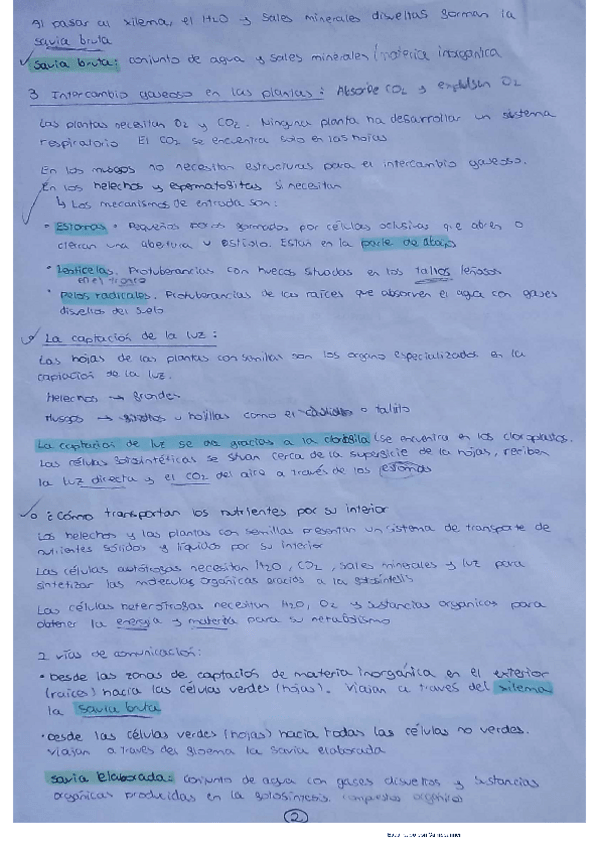 Al pasar al xilema, el H2O y sales minerales disueltas forman la
savia bruta
Savia bruta: conjunto de agua y sales minerales / materia inorganica
3 Intercambio gaseoso en las plantas: Absorbe CO2 y expulsan O2
Las plantas necesitan O2 y CO2. Ninguna planta ha desarrollar un sistema
respiratorio El CO2 se encuentra solo en las hojas
En los musgos no necesitan estructuras para el intercambio gaseoso.
En los helechos y espermatofitas si necesitan
↳ Los mecanismos de entrada son:
• Estomas • Pequeños poros formados por células oclusivas que abren o
cierran una abertura u ostiolo. Están en la parte de abajo
• Lenticelas. Protuberancias con huecos situadas en los tallos leñosos
en el tronco
• Pelos radicales. Protuberancias de las raíces que absorven el agua con gases
disueltos del suelo
La captación de la luz:
Las hojas de las plantas con semillas son los organo especializados en la
captacion de la luz.
Helechos → grandes
Musgos → hojillas como el o talito
La captación de luz se da gracias a la clorofila (se encuentra en los cloroplastos.
Las células fotosintéticas se situan cerca de la superficie de la hojas, reciben
la luz directa y el CO2 del aire a través de los estomas
o ¿Cómo transportan los nutrientes por su interior
Los helechos y las plantas con semillas presentan un sistema de transporte de
nutrientes sólidos y líquidos por su interior
Las células autótrofas necesitan H2O, CO2, sales minerales y luz para
sintetizar las moleculas organicas gracias a la fotosintesis
Las células heterótrofas necesitan H2O, O2 y sustancias organicas para
obtener la energia y materia para su metabolismo
2 vías de comunicación:
• Desde las zonas de captación de materia inorgánica en el exterior
(raices) hacia las células verdes (hojas). Viajan a través del xilema
la savia bruta
• Desde las células verdes (hojas) hacia todas las células no verdes.
Viajan a traves del floema la savia elaborada
savia elaborada: Conjunto de agua con gases disueltos y sustancias
orgánicas producidas en la fotosintesis. compuestos orgánicos
2